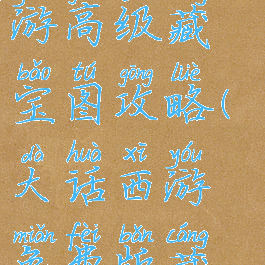 游高级藏
bǎo tú gōng lüè
宝图攻略(
dà huà xī yóu
大话西游
miǎn fèi bǎn cáng
免费版藏